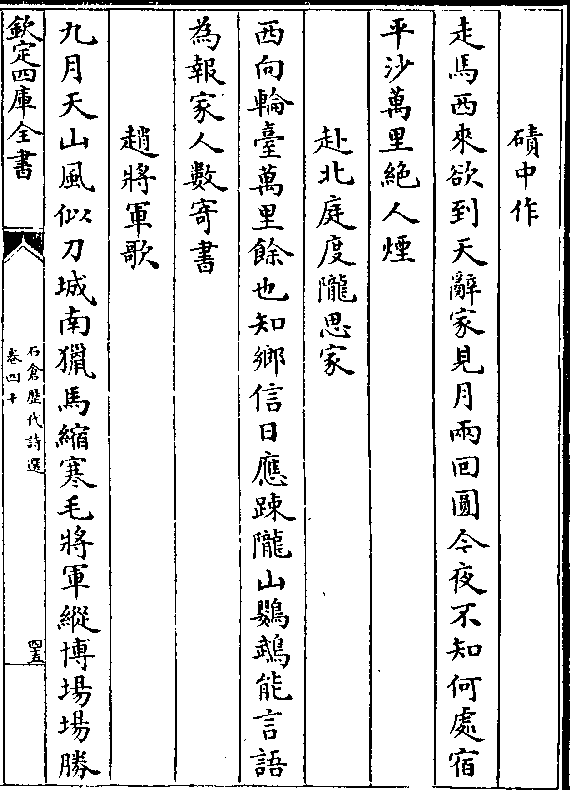 磧中作
走馬西來欲到天辭家見月兩回圓今夜不知何處宿
平沙萬里絶人煙
赴北庭度隴思家
西向輪臺萬里餘也知鄉信日應踈隴山鸚鵡能言語
為報家人數寄書
趙將軍歌
九月天山風似刀城南獵馬縮寒毛將軍縱博場場勝
欽定四庫全書
石倉歷代詩選
卷四十
四五